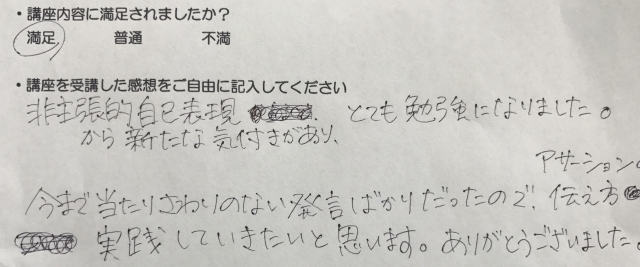 ・講座内容に満足されましたか?
満足 普通 不満
・講座を受講した感想をご自由に記入してください
非主張的自己表現 とても勉強になりました。
から新たな気付きがあり、
アサーション
今まで当たりさわりのない発言ばかりだったので、伝え方
実践していきたいと思います。ありがとうございました。